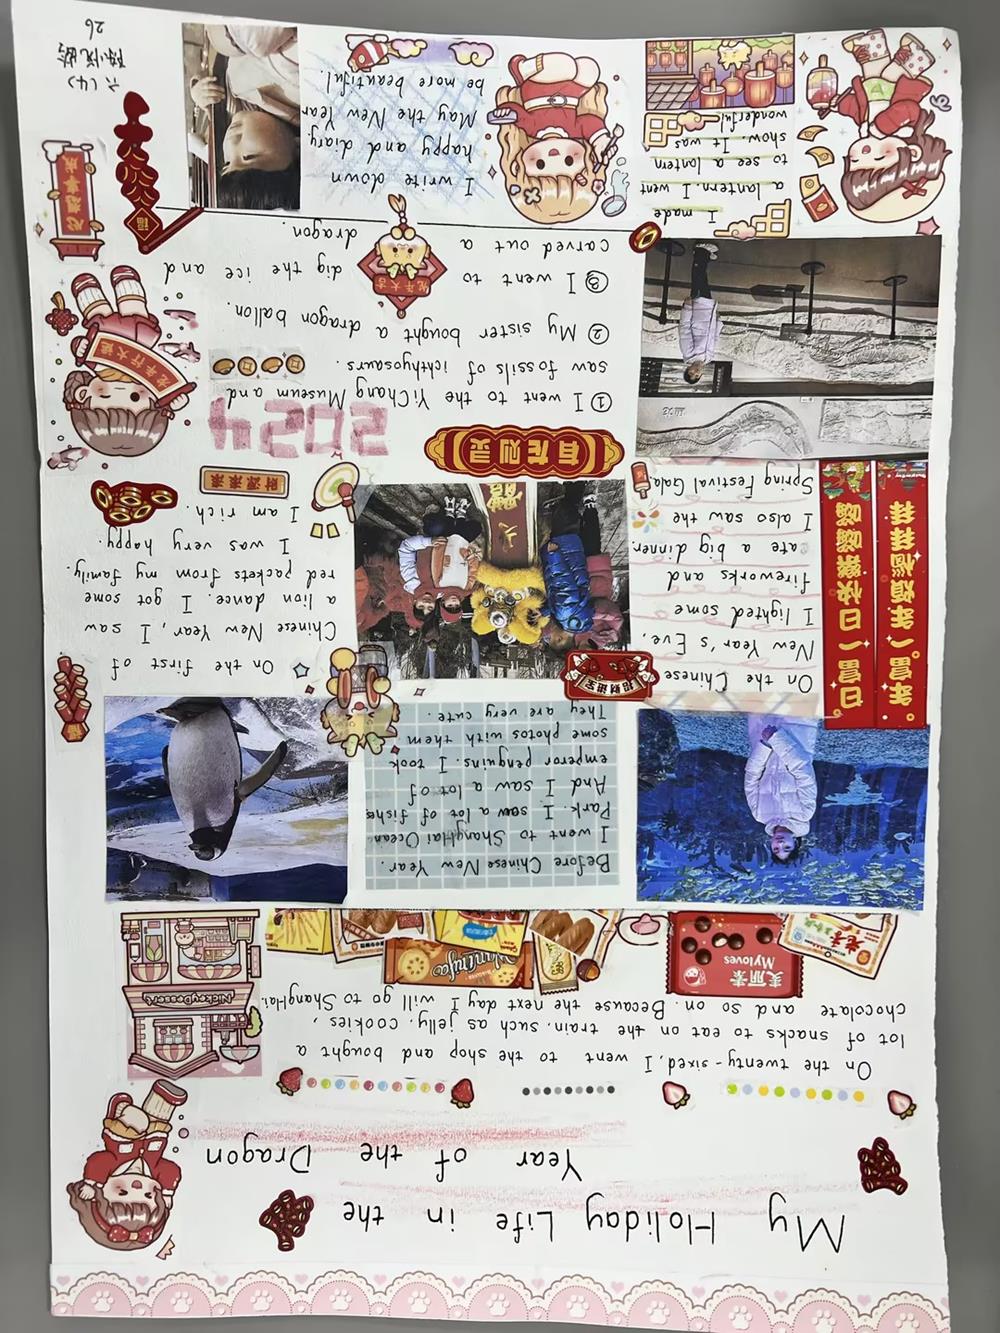 My Holiday Life in the
Year of the Dragon
On the twenty-sixed, I went to the shop and bought a
lot of snacks to eat on the train. such as jelly. cookies,
chocolate and so on. Because the next day I will go to ShangHai.
NickyDessert
麦丽素
Mylove's
Before Chinese New Year.
I went to ShangHai Ocean
Park. I saw a lot of fishes
And I saw a lot of
emperor penguins. I took
some photos with them
They are very cute.
On the Chinese
New Year's Eve,
I lighted some
fireworks and
eate a big dinner.
I also saw the
Spring Festival Gala.
招财进宝
On the first of
Chinese New Year, I saw
a lion dance. I got some
red packets from my family.
I was very happy.
I am rich.
財源滚滚
有龙则灵
2024
① I went to the YiChang Museum and
saw fossils of ichthyosaurs.
② My sister bought a dragon ballon.
③ I went to dig the ice and
carved out a dragon
龙年大吉
I made
a lantern. I went
to see a lantern
show. It was
wonderful
I write down
happy and diary
May the New Year
be more beautiful.
福
心想事成
六(4)
26